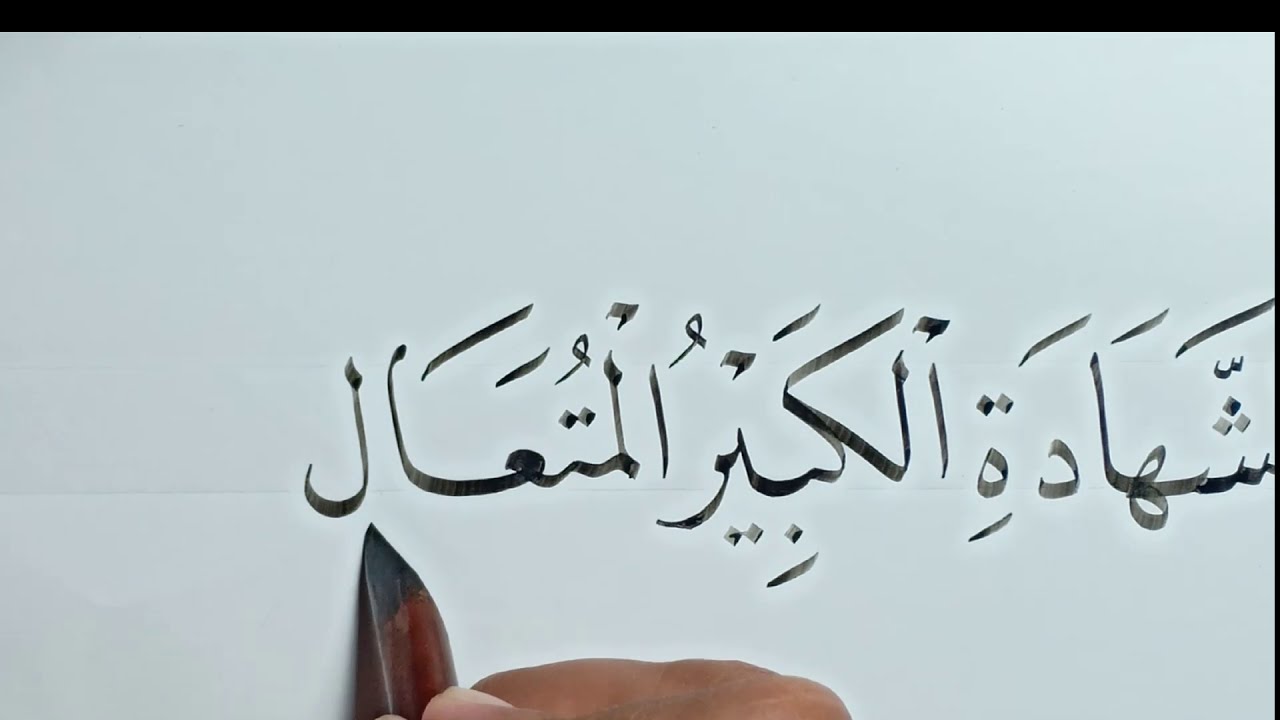 شَّهَادَةِ ٱلْكَبِيْرُ ٱلْمُتَعَال